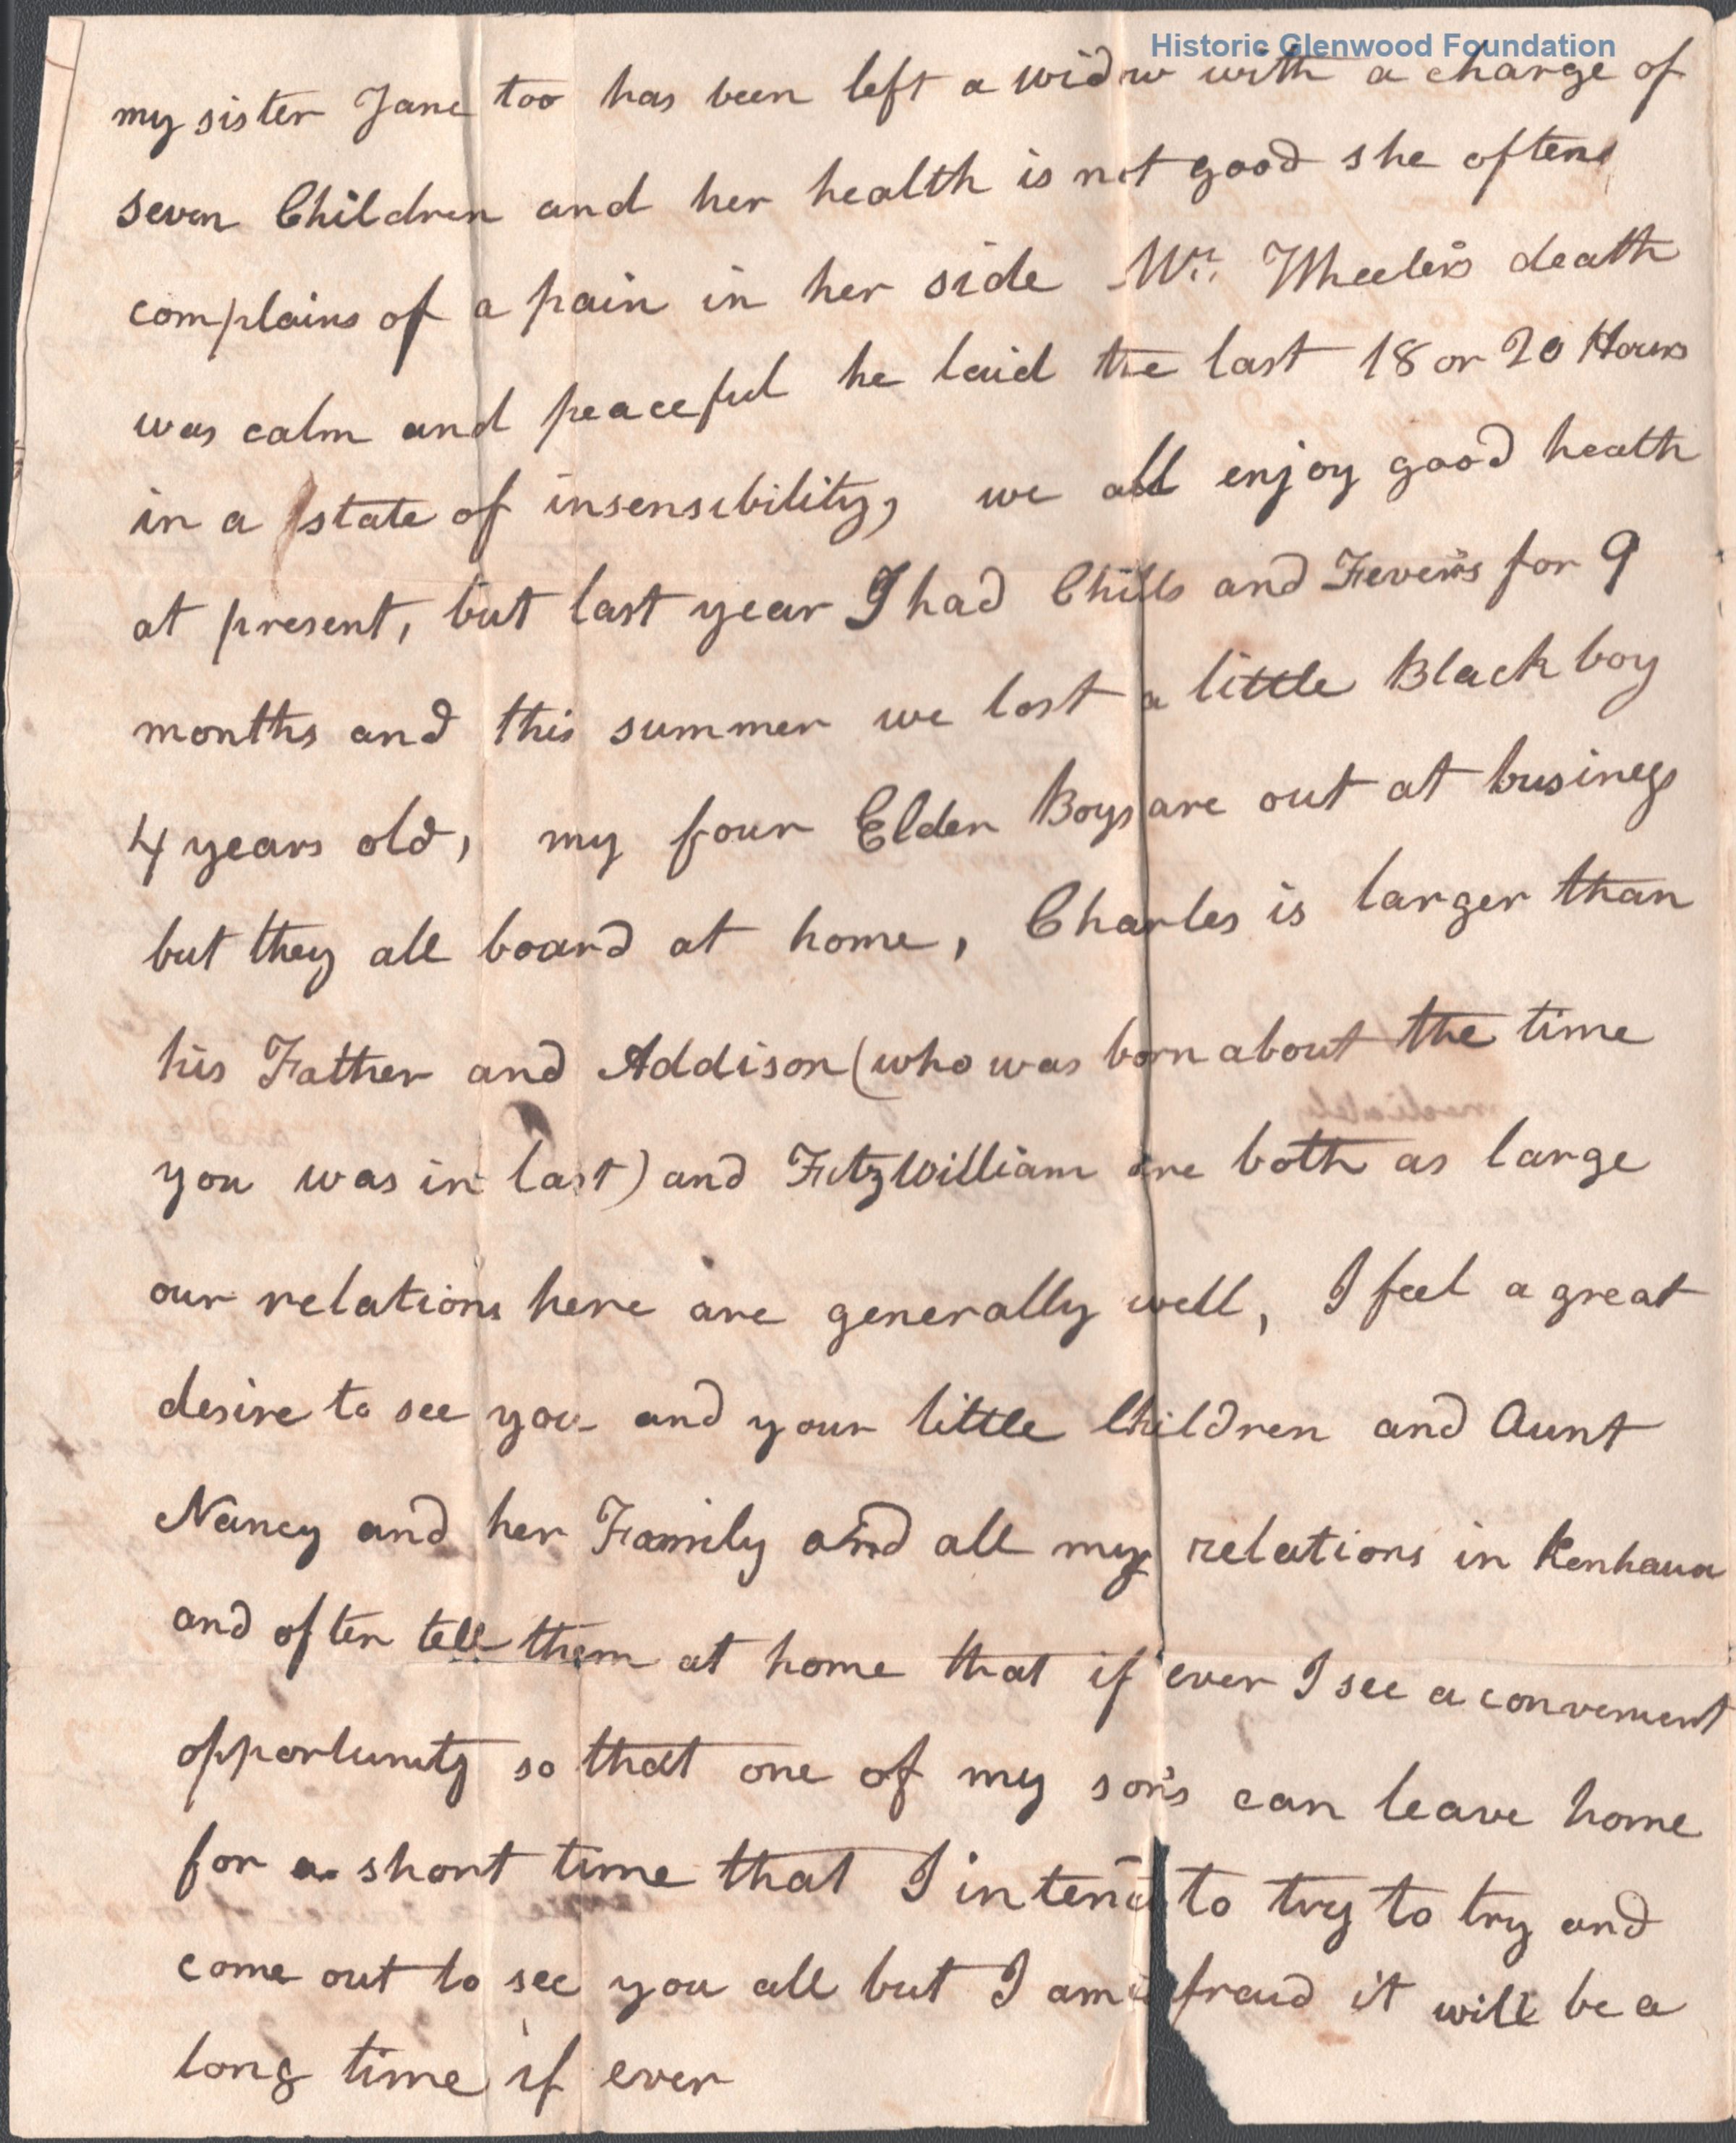 Historic Glenwood Foundation
my sister Jane too has been left a widw with a charge of
seven Children and her health is not good she often
complains of a pain in her side Mr. Wheeler's death
was calm and peaceful he laid the last 18 or 20 Hours
in a state of insensibility, we all enjoy good heath
at present, but last year I had Chills and Fever's for 9
months and this summer we lost a little Black boy
4 years old, my four Elder Boys are out at business
but they all board at home, Charles is larger than
his Father and Addison (who was born about the time
you was in last) and FitzWilliam are both as large
our relations here are generally well, I feel a great
desire to see you and your little Children and Aunt
Nancy and her Family and all my relations in Kenhaua
and often tell them at home that if ever I see a convenient
opportunity so that one of my son's can leave home
for a short time that I intend to try to try and
come out to see you all but I am afraid it will be a
long time if ever